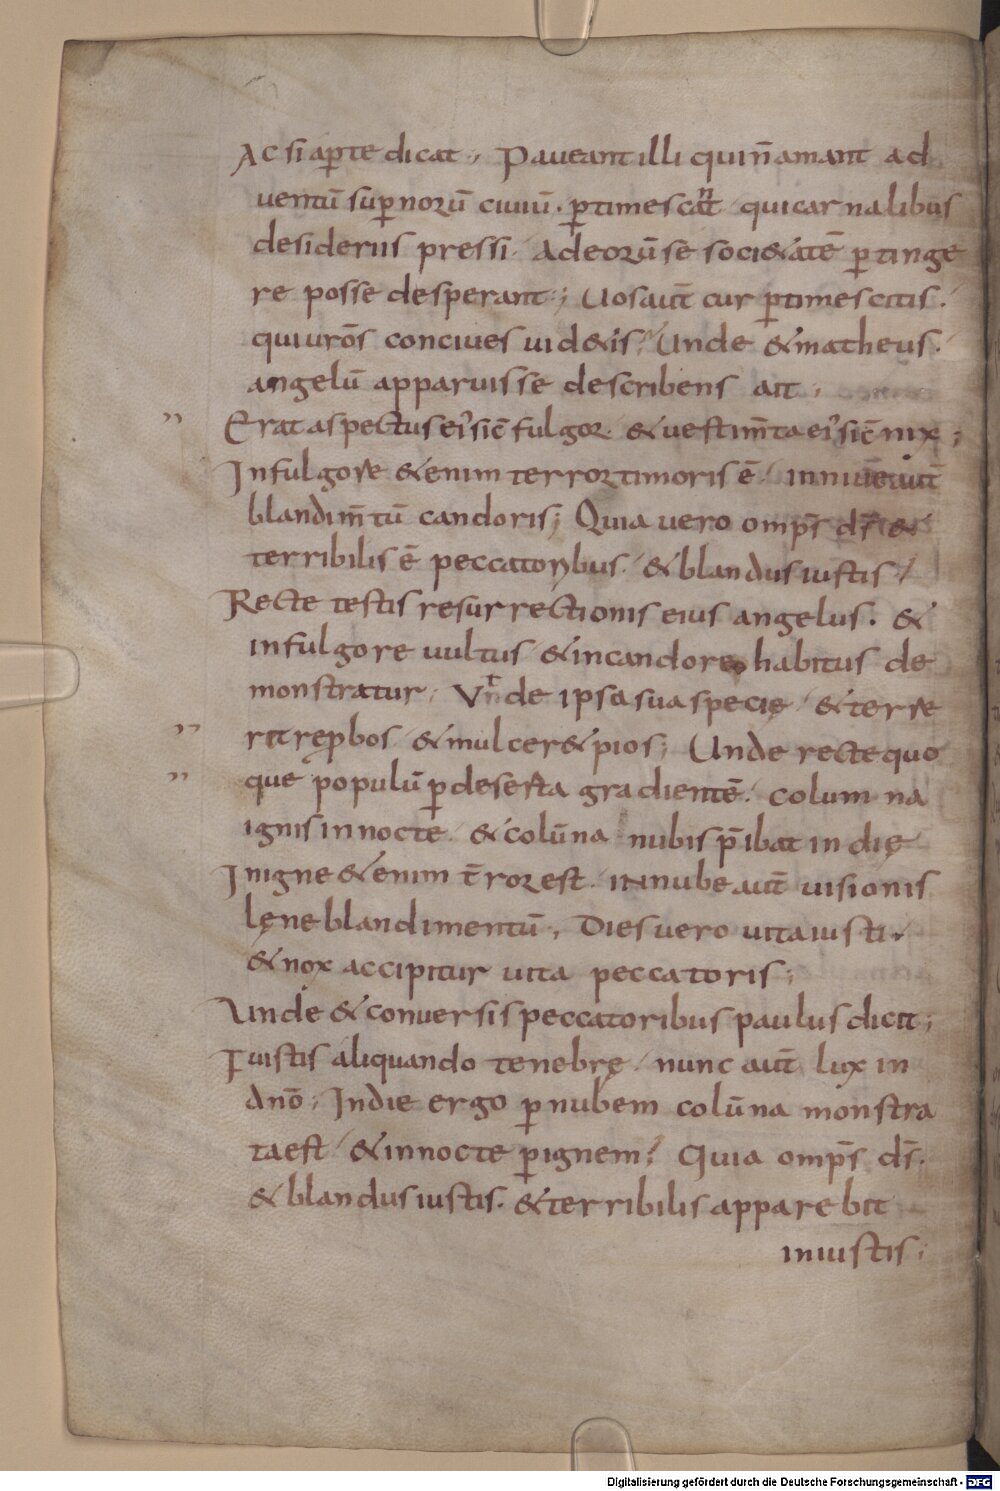 Ac si aꝑte dicat ., Paveant illi qui n̄ amant ad
ventū suꝑnorū civiū. ꝑtimescant qui carnalibus
desideriis pressi. Adeorū se soci&atē ꝑtinge
re posse desperant; Uos aūt cur ꝑtimescitis.
qui vr̄os concives vid&is; Unde & matheus.
angelū apparuisse describens ait;
Erat aspectus ei' sic̄ fulgor. & vestim̄ta ei' sic̄ nix;
In fulgore &enim terror timoris ē. in nive aūt
blandim̄tū candoris; Quia vero omp̄s d̄s &
terribilis ē peccatoribus. & blandus iustis.
Recte testis resurrectionis eius angelus. &
in fulgore vultus & in candore habitus de
monstratur; Unde ipsa sua specię. & terre
rit reꝓbos. & mulcer& pios; Unde recte quo
que populū ꝑ deserta gradientē. columna
ignis in nocte. & colūna nubis p̄ibat in dię
In igne &enim t̄ror est. in nube aūt visionis
lęne blandimentū; Dies vero vita iusti.
& nox accipitur vita peccatoris;
Unde & conversis peccatoribus paulus dicit;
Fuistis aliquando tenebrę. nunc aūt lux in
dn̄o; In die ergo ꝑ nubem colūna monstra
ta est. & in nocte ꝑ ignem; Quia omp̄s d̄s.
& blandus iustis. & terribilis apparebit
iniustis;
Digitalisierung gefördert durch die Deutsche Forschungsgemeinschaft - DFG